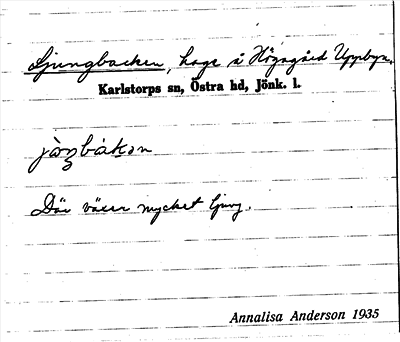 Ljungbacken, hage å Högagärd Uppbyn,
Karlstorps sn, Östra hd, Jönk. l.
jòŋbàkən
Där växer mycket ljung.
Annalisa Anderson 1935